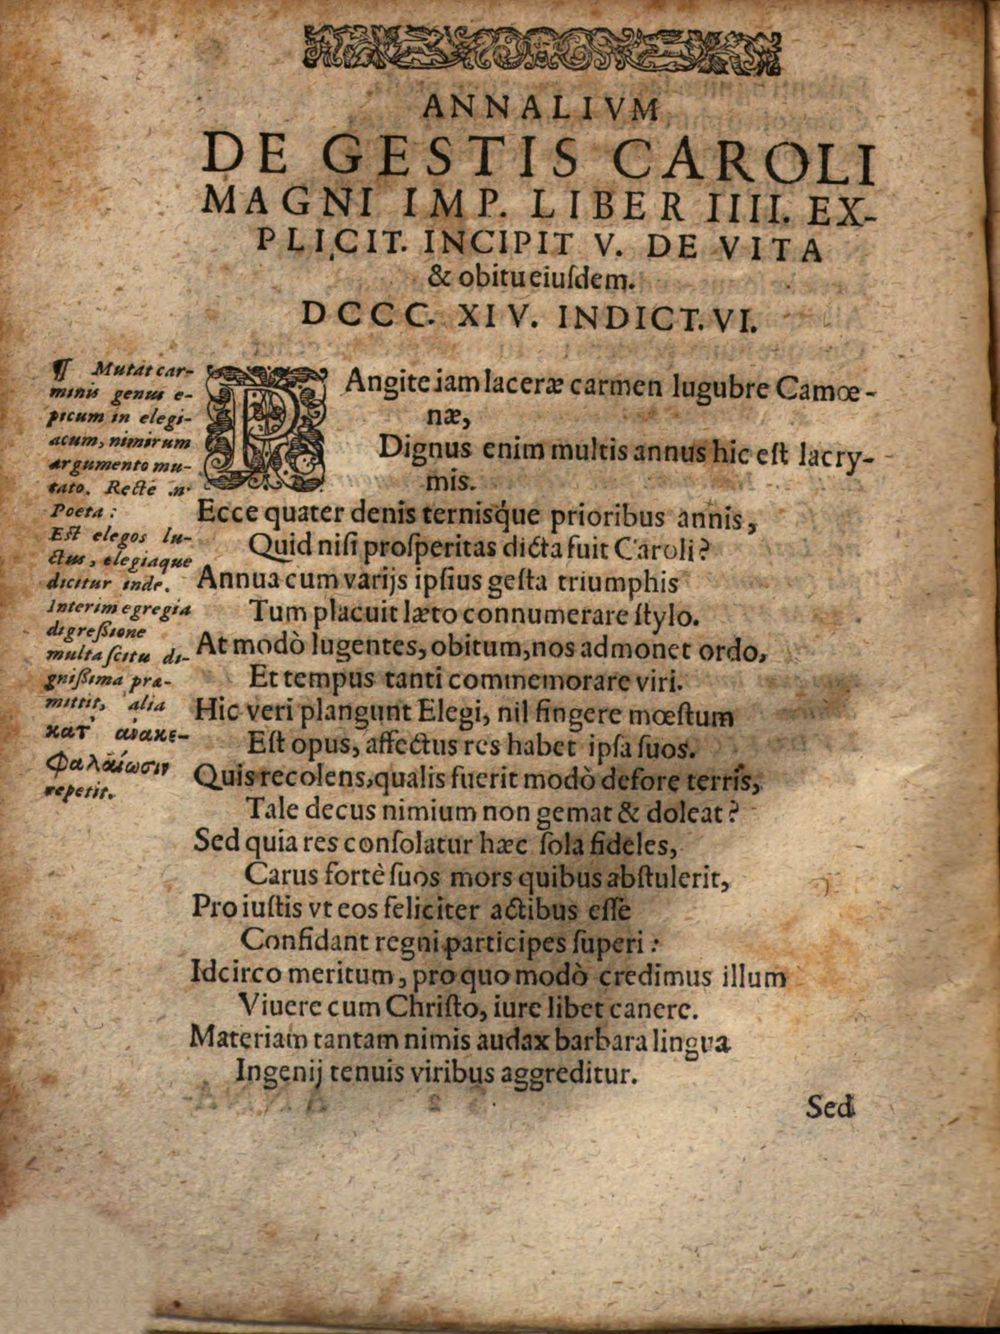 ANNALIVM
DE GESTIS CAROLI
MAGNI IMP. LIBER IIII. EX-
PLICIT. INCIPIT V. DE VITA
& obitu eiuſdem.
DCCC. XIV. INDICT. VI.
¶ Mutat car-
minis genus e-
picum in elegi-
acum, nimirum
argumento mu-
tato. Recte .n.
Poeta:
Eſt elegos lu-
ctus, elegiaque
dicitur inde.
Interim egregia
digreſsione
multa ſcitu di-
gniſsima præ-
mittit, alia
κατ' ἀνακε-
φαλαίωσιν
repetit.
PAngite iam laceræ carmen lugubre Camœ-
næ,
Dignus enim multis annus hic eſt lacry-
mis.
Ecce quater denis ternisq́ue prioribus annis,
Quid niſi proſperitas dicta fuit Caroli?
Annua cum varijs ipſius geſta triumphis
Tum placuit læto connumerare ſtylo.
At modò lugentes, obitum, nos admonet ordo,
Et tempus tanti commemorare viri.
Hic veri plangunt Elegi, nil fingere mœſtum
Eſt opus, affectus res habet ipſa ſuos.
Quis recolens, qualis fuerit modò defore terris,
Tale decus nimium non gemat & doleat?
Sed quia res conſolatur hæc ſola fideles,
Carus fortè ſuos mors quibus abſtulerit,
Pro iuſtis vt eos feliciter actibus eſſe
Confidant regni participes ſuperi:
Idcirco meritum, pro quo modò credimus illum
Viuere cum Chriſto, iure libet canere.
Materiam tantam nimis audax barbara lingua
Ingenij tenuis viribus aggreditur.
Sed